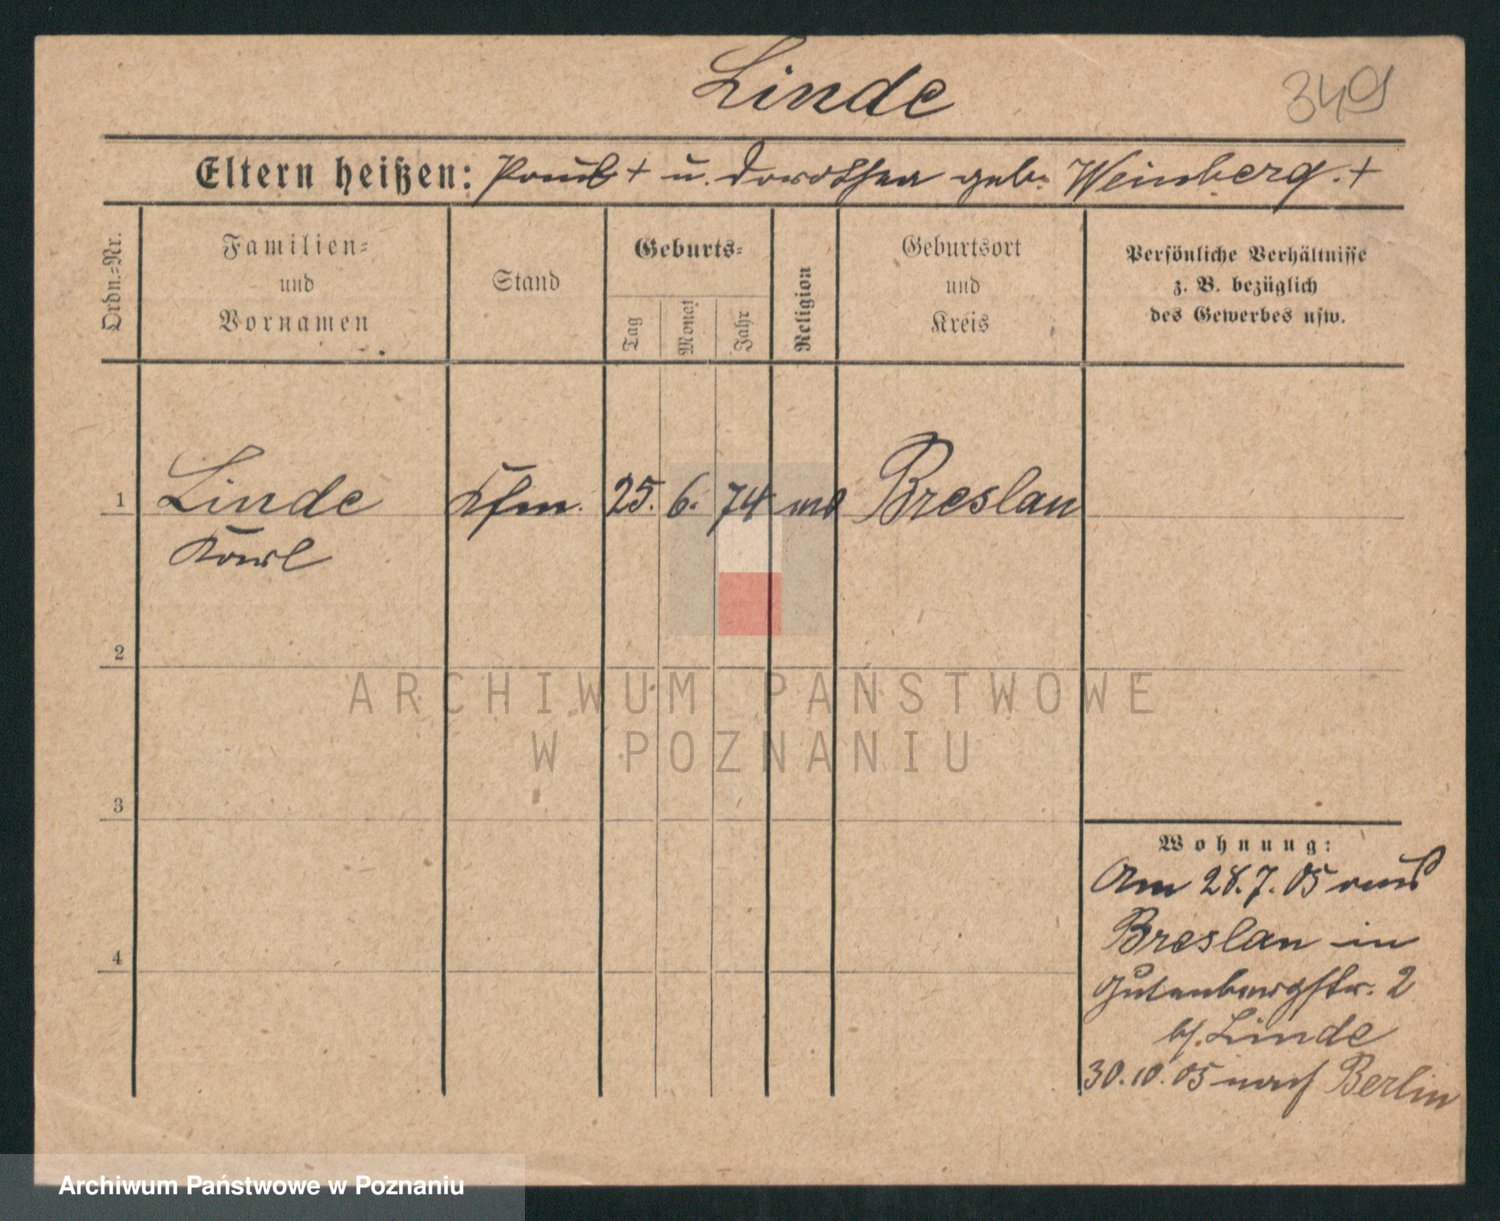 Linde
349
Eltern heißen: Paul + u. Dorothea geb. Weinberg. +
Ordn.-Nr.
Familien-
und
Vornamen
Stand
Geburts-
Tag
Monat
Jahr
Religion
Geburtsort
und
Kreis
Persönliche Verhältnisse
z. B. bezüglich
des Gewerbes usw.
1 Linde Kfm. 25. 6. 74 Breslau
Karl
2
3
4
Wohnung:
Am 28.7.05 aus
Breslau in
Gutenbergstr. 2
b/. Linde
30.10.05 nach Berlin
ARCHIWUM PAŃSTWOWE
W POZNANIU
Archiwum Państwowe w Poznaniu